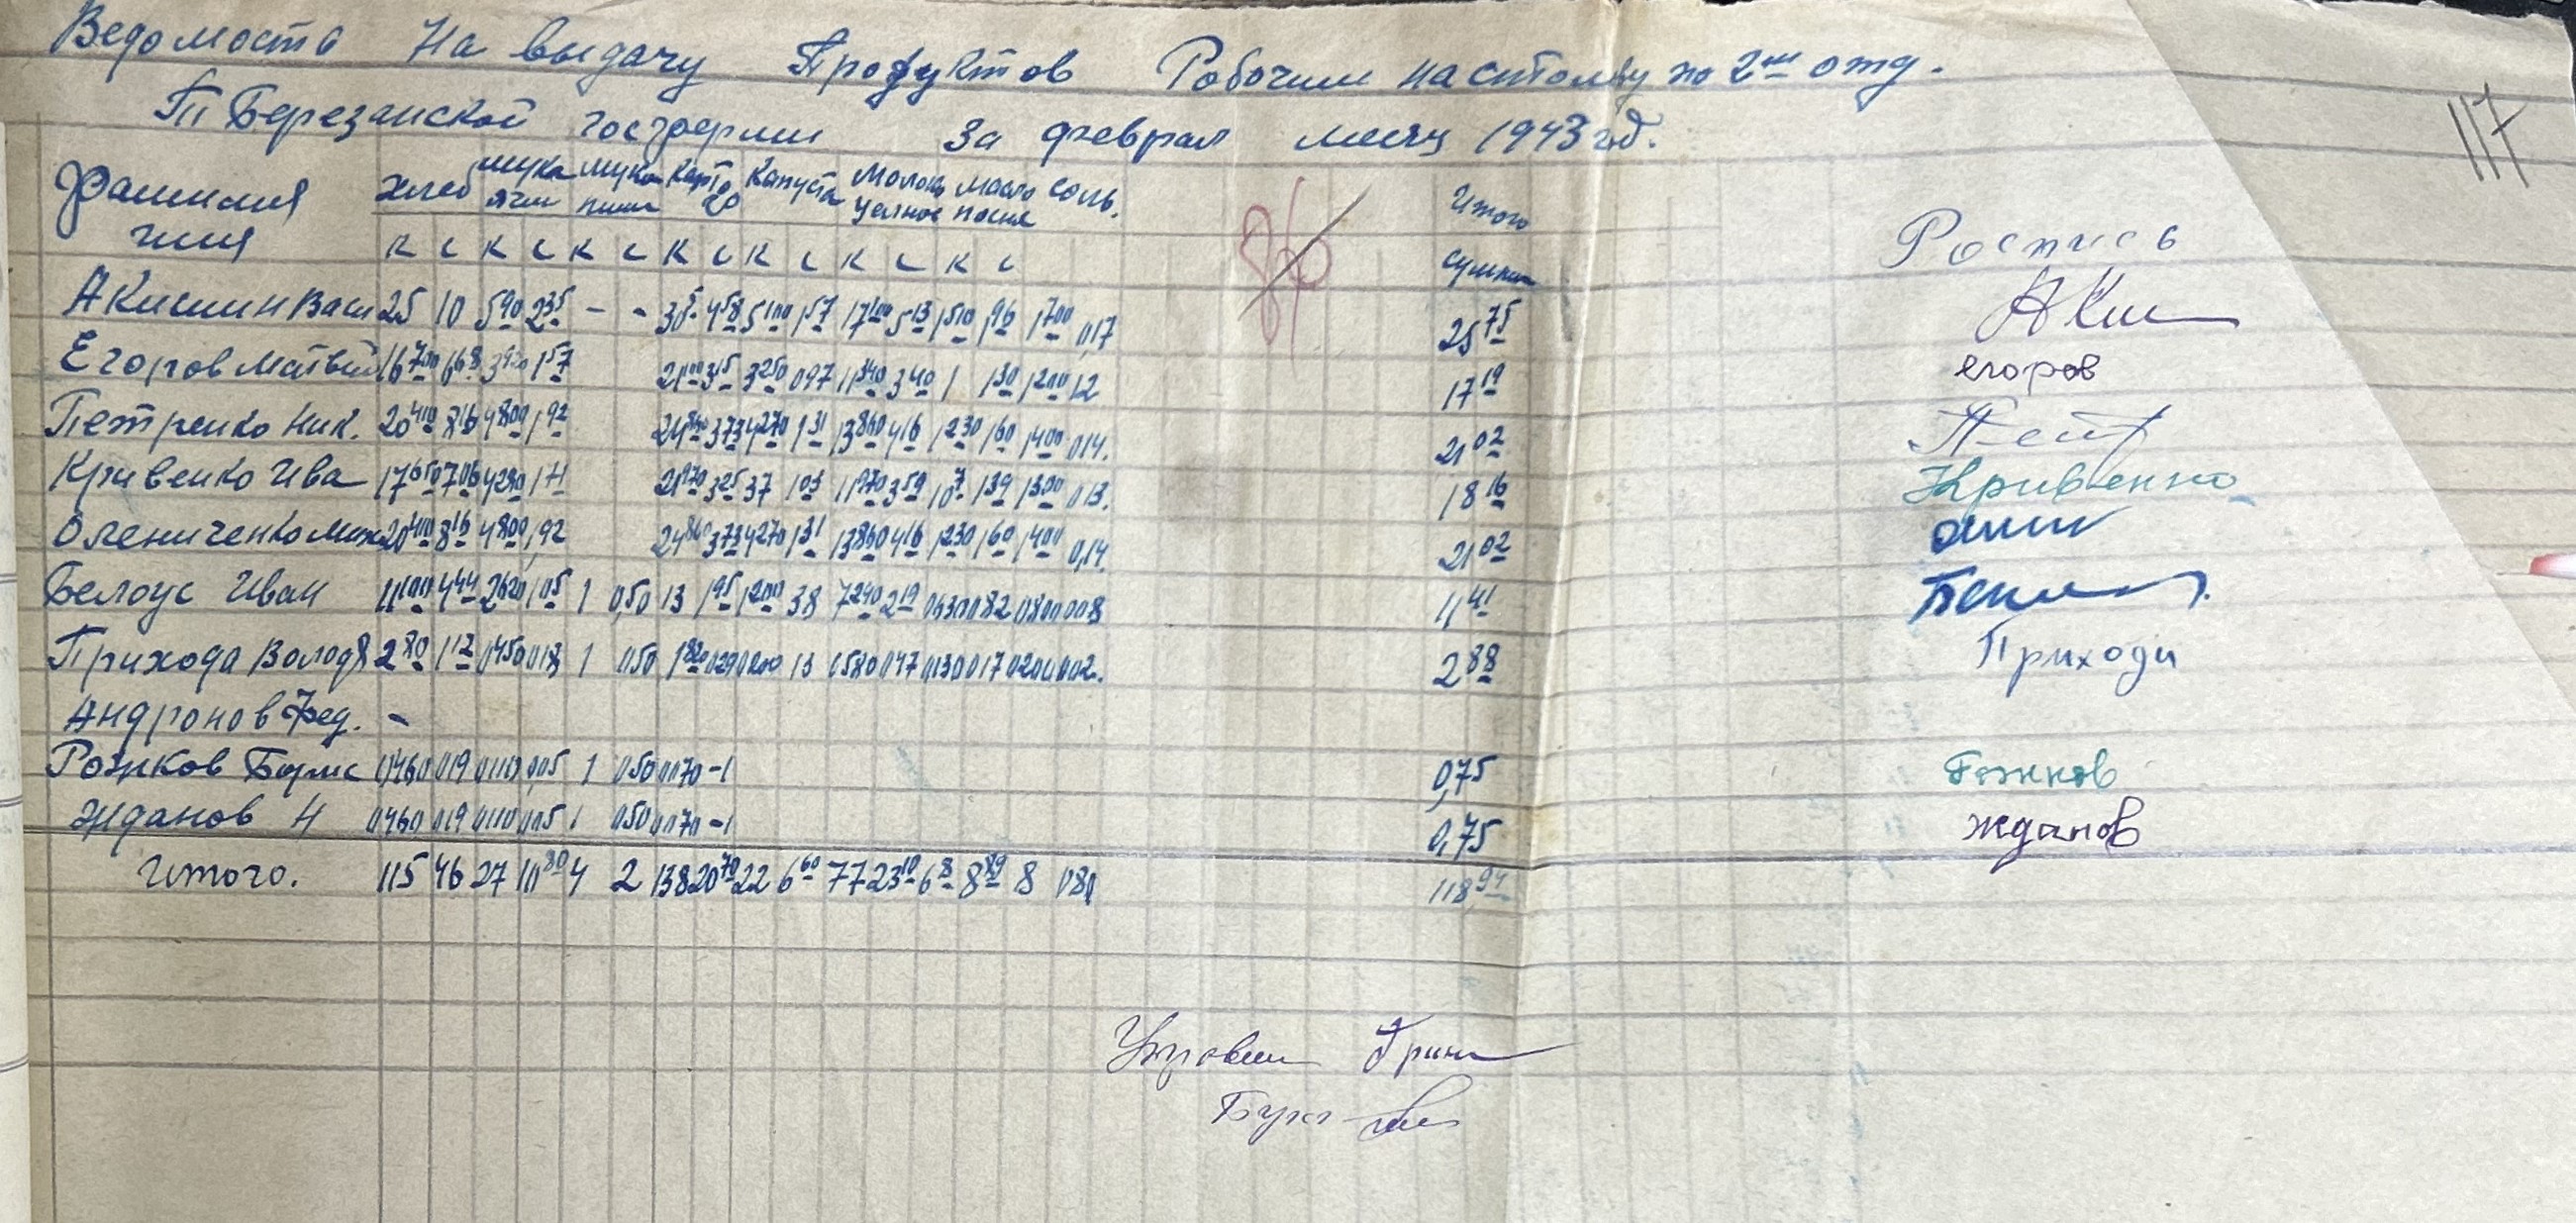 Ведомость На выдачу Продуктов Рабочим на столову по 2ое отд.
117
ТП Березанской госфермы за феврал месяц 1943 год.
Фамилия хлеб мука ячм мука пшен карто капуста молоко цельное масло посн соль. Итого
имя к с к с к с к с к с к с к с суммы Роспись
Акишин Васи 25 10 5 90 2 35 - - 4 58 5 100 1 57 17 100 5 13 1 510 96 1 700 0,17 25 75 Аки
Егоров Матвей 16 700 6 68 1 57 3 15 3 250 097 11 340 3 40 1 1 30 1 200 12 17 19 егоров
Петренко Ник. 20 410 8 16 4 800 1,92 24 860 3 73 4 270 1 31 13 860 4 16 1 230 1 60 1 400 0 14. 21 02 Петр
Кривенко Ива 17 650 7 06 21 970 3 25 37 1 03 11 970 3 59 1 39 1 300 0 13. 18 16 Кривенко
Олениченко Мих 20 400 8 16 4 800 1,92 24 860 3 73 4 270 1 31 13 860 4 16 1 230 1 60 1 400 0,14. 21 02
Белоус Иван 11 100 4 44 2 620 1 05 1 0,50 13 1 95 1 200 38 7 290 2 19 0630 082 0800 008 11 41
Прихода Володя 2 80 1 12 0450 018 1 050 1 820 029 0200 13 0580 047 0,130 017 0200 002. 2 88 Приходи
Андронов Фед. -
Рожков Борис 0,460 019 0110 005 1 050 0070 - 1 0,75 Рожков
Жданов Н 0460 019 0110 005 1 050 0070 - 1 0,75 жданов
Итого. 115 46 27 10 80 4 2 138 20 70 22 6 60 77 23 10 6 8 8 89 8 080 118 94
Управ
Бух